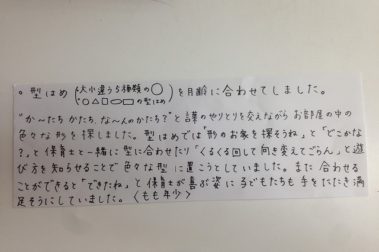 。型はめ(大小違う5種類の○
・○△□○▭の型はめ)を月齢に合わせてしました。
"か〜たち かたち、な〜んのかたち?"と言葉のやりとりを交えながらお部屋の中の
色々な形を探しました。型はめでは"形のお家を探そうね"と"どこかな
?"と保育士と一緒に型に合わせたり"くるくる回して向き変えてごらん"と遊
び方を知らせることで色々な型に置こうとしていました。また合わせる
ことができると"できたね"と保育士が喜ぶ姿に子どもたちも手をたたき満
足そうにしていました。〈もも年少〉